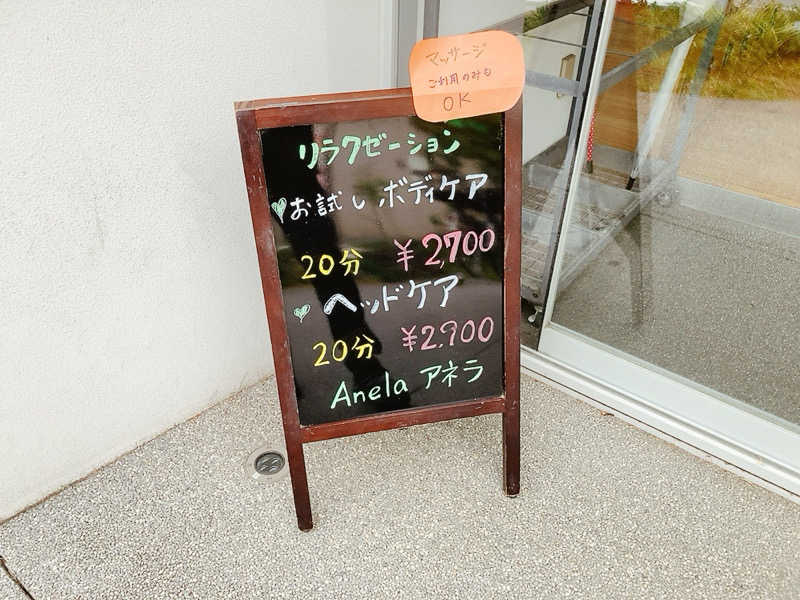 マッサージ
ご利用のみも
OK
リラクゼーション
お試し ボディケア
20分 ¥2,700
ヘッドケア
20分 ¥2,900
Anela アネラ